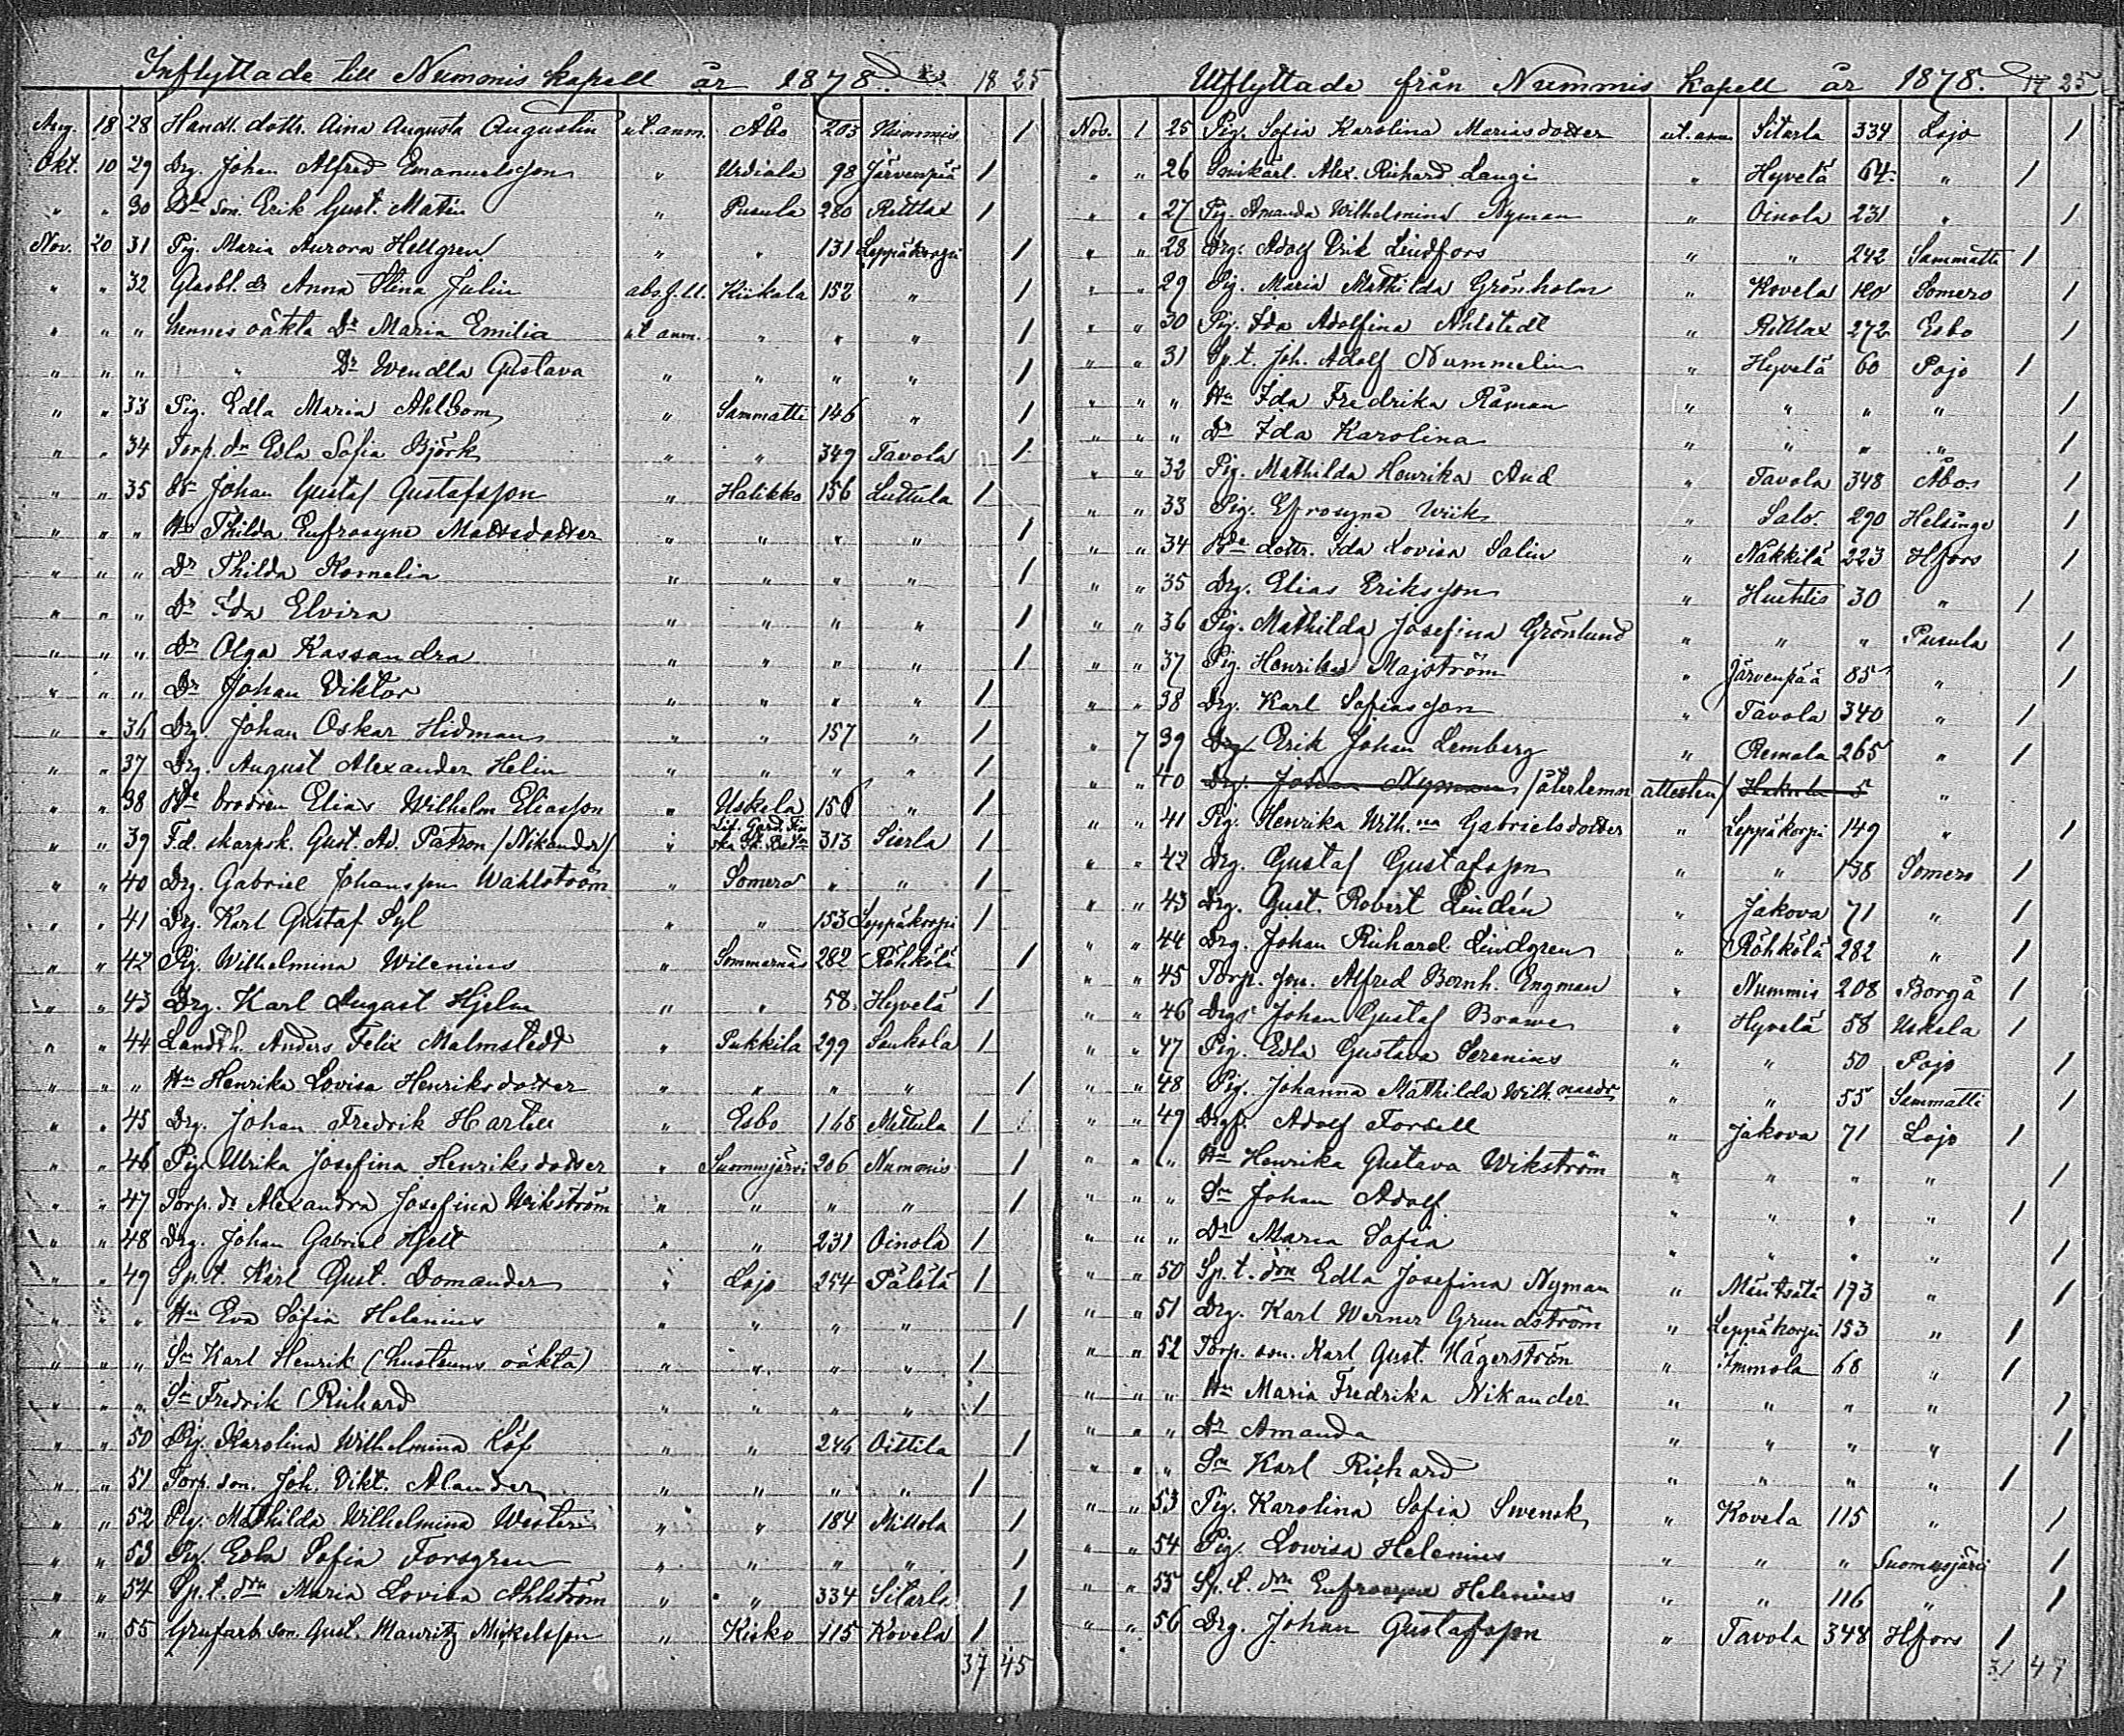 Inflyttade till Nummis kapell år 1878. 18 25
Aug. 18 28 Handl. dottr. Aina Augusta Augustin ut. anm. Åbo 203 Nummis 1
Okt. 10 29 Drg. Johan Alfred Emanuelsson " Urdiala 98 Järvenpää 1
" " 30 Bde son. Erik Gust. Matin " Pusula 280 Retlax 1
Nov. 20 31 Pig. Maria Aurora Hellgren " " 131 Leppäkorpi 1
" " 32 Glasbl. dr Anna Stina Julin abs. f. ll. Kiikala 152 " 1
" " " hennes oäkta Dr Maria Emilia ut anm. " " " 1
" " " " Dr Wendla Gustava " " " " 1
" " 33 Pig. Edla Maria Ahlbom " Sammatti 146 " 1
" " 34 Torp. dr Edla Sofia Björk " " 349 Tavola 1
" " 35 Johan Gustaf Gustafsson " Halikko 156 Luttula 1
" " " Hu Thilda Eufrosyne Mattsdotter " " " " 1
" " " Dr Thilda Kornelia " " " " 1
" " " Dr Ida Elvira " " " " 1
" " " Dr Olga Kassandra " " " " 1
" " " Johan Viktor " " " " 1
" " 36 Drg. Johan Oskar Hidman " " 157 " 1
" " 37 Drg. August Alexander Helin " " " " 1
" " 38 Bde brodren Elias Wilhelm Eliasson " Uskela 158 " 1
" " 39 F.d. skarpsk. Gust. Ad. Patron /Nikander/ " Lif. Gard. Fin ska Sk. Batn 313 Sierla 1
" " 40 Drg. Gabriel Johansson Wahlström " Somero " " 1
" " 41 Drg. Karl Gustaf Syl " " 153 Leppäkorpi 1
" " 42 Pig. Wilhelmina Wilenius " Sommarnäs 282 Röhkölä 1
" " 43 Drg. Karl August Hjelm " " 58 Hyvelä 1
" " 44 Landth. Anders Felix Malmstedt " Pukkila 299 Saukola 1
" " " Hu Henrika Lovisa Henriksdotter " " " " 1
" " 45 Drg. Johan Fredrik Hartell " Esbo 168 Mettula 1
" " 46 Pig. Ulrika Josefina Henriksdotter " Suomusjärvi 206 Nummis 1
" " 47 Torp. dr Alexandra Josefina Wikström " " " " 1
" " 48 Drg. Johan Gabriel Hjelt " " 231 Oinola 1
" " 49 Sp.t. Karl Gust. Domander " Lojo 254 Pälölä 1
" " " Hu Eva Sofia Helenius " " " " 1
" " " Sn Karl Henrik (hustruns oäkta) " " " " 1
" " " Sn Fredrik Richard " " " " 1
" " 50 Pig. Karolina Wilhelmina Löf " " 246 Oittila 1
" " 51 Torp. son. Joh. Vikt. Alander " " " " 1
" " 52 Pig. Mathilda Wilhelmina Westeri " " 184 Millola 1
" " 53 Pig. Edla Sofia Forsgren " " " " 1
" " 54 Sp.t. drn Maria Lovisa Ahlström " " 334 Sitarla 1
" " 55 Grufarb. son. Gust. Mauritz Mickelsson " Kisko 115 Kovela 1
37 45
Utflyttade från Nummis kapell år 1878. 17 25
Nov. 1 25 Pig. Sofia Karolina Mariasdotter ut. anm Sitarla 334 Lojo 1
" " 26 Smikärl. Alex. Richard Langi " Hyvelä 64 " 1
" " 27 Pig. Amanda Wilhelmina Nyman " Oinola 231 " 1
" " 28 Drg. Adolf Erik Lindfors " " 242 Sammatti 1
" " 29 Pig. Maria Mathilda Grönholm " Kovela 120 Somero 1
" " 30 Pig. Ida Adolfina Ahlstedt " Retlax 272 Esbo 1
" " 31 Sp.t. Joh. Adolf Nummelin " Hyvelä 60 Pojo 1
" " " Hu Ida Fredrika Råman " " " " 1
" " " Dr Ida Karolina " " " " 1
" " 32 Pig. Mathilda Henrika And " Tavola 348 Åbo 1
" " 33 Pig. Efrosyna Wiik " Salo 290 Helsinge 1
" " 34 Bde dottr. Ida Lovisa Salin " Näkkilä 223 Hfors 1
" " 35 Drg. Elias Eriksson " Huhtis 30 " 1
" " 36 Pig. Mathilda Josefina Grönlund " " " Pusula 1
" " 37 Pig. Henrika Majström " Järvenpää 85 " 1
" " 38 Drg. Karl Sofiasson " Tavola 340 " 1
" 7 39 Drg. Erik Johan Lemberg " Remala 265 " 1
" " 40 Drg. Johan Nyman /återlemn attesten/ 5 "
" " 41 Pig. Henrika Wilh.na Gabrielsdotter " Leppäkorpi 149 " 1
" " 42 Drg. Gustaf Gustafsson " " 138 Somero 1
" " 43 Drg. Gust. Robert Lindén " Jakova 71 " 1
" " 44 Drg. Johan Richard Lindgren " Röhkölä 282 " 1
" " 45 Torp. son. Alfred Bernh. Engman " Nummis 208 Borgå 1
" " 46 Drgs Johan Gustaf Brawe " Hyvelä 58 Uskela 1
" " 47 Pig. Edla Gustava Serenius " " 50 Pojo 1
" " 48 Pig. Johanna Mathilda Wilh. " " 55 Sammatti 1
" " 49 Adolf Forsell " Jakova 71 Lojo 1
" " " Hu Henrika Gustava Wikström " " " " 1
" " " Sn Johan Adolf " " " " 1
" " " Dr Maria Sofia " " " " 1
" " 50 Sp.t. drn Edla Josefina Nyman " Mäntsälä 173 " 1
" " 51 Drg. Karl Werner Grundström " Leppäkorpi 153 " 1
" " 52 Torp. son. Karl Gust. Hägerström " Immola 68 " 1
" " " Hu Maria Fredrika Nikander " " " " 1
" " " Dr Amanda " " " " 1
" " " Sn Karl Richard " " " " 1
" " 53 Pig. Karolina Sofia Swensk " Kovela 115 " 1
" " 54 Pig. Lowisa Helenius " " " Suomusjärvi 1
" " 55 Sp.t. drn Eufrosyne Helenius " " 116 " 1
" " 56 Drg. Johan Gustafsson " Tavola 348 Hfors 1
31 47